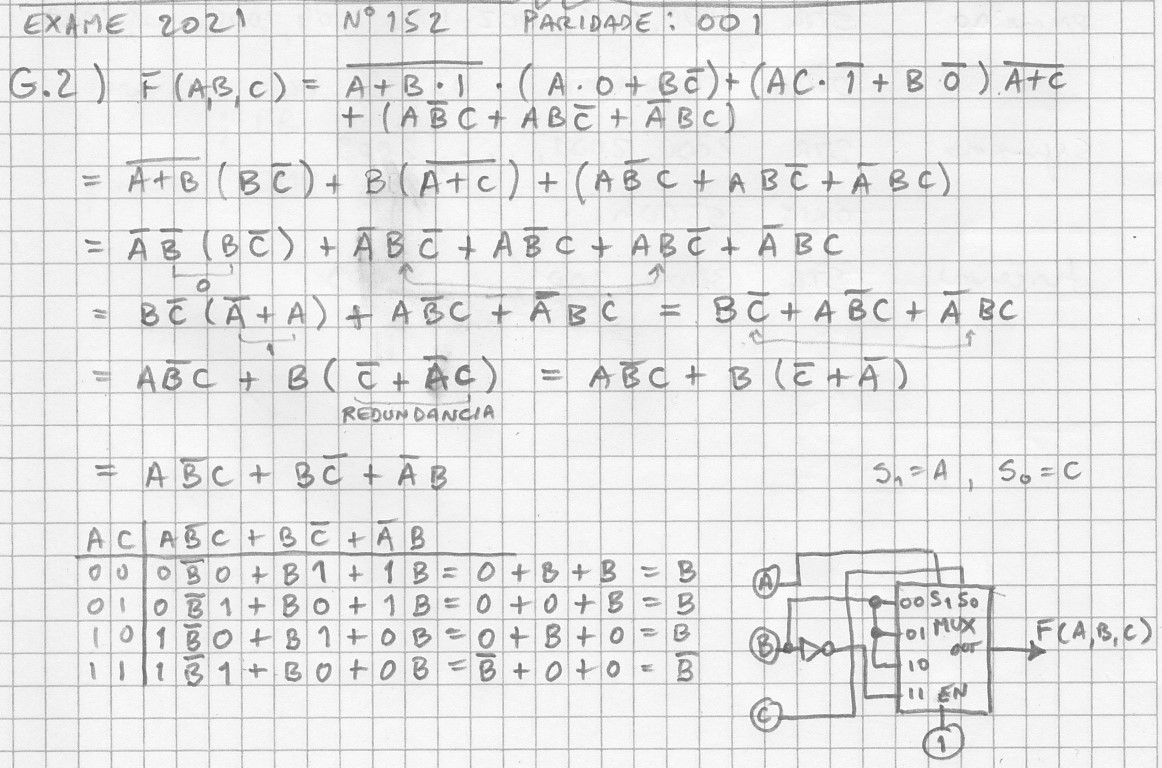 EXAME 2021 Nº 152 PARIDADE: 001
G.2) F(A,B,C) = \overline{A+B·1} · (A·0 + BC̅) + (AC·1̅ + B 0̅) \overline{A+C}
+ (AB̅C + ABC̅ + A̅BC)
= \overline{A+B} (BC̅) + B (\overline{A+C}) + (AB̅C + ABC̅ + A̅BC)
= A̅B̅ (BC̅) + A̅BC̅ + AB̅C + ABC̅ + A̅BC
0
= BC̅ (A̅ + A) + AB̅C + A̅BC = BC̅ + AB̅C + A̅BC
1
= AB̅C + B (C̅ + A̅C) = AB̅C + B (C̅ + A̅)
REDUNDANCIA
= AB̅C + BC̅ + A̅B S₁=A, S₀=C
A C AB̅C + BC̅ + A̅B
0 0 0B̅0 + B1 + 1B = 0 + B + B = B
0 1 0B̅1 + B0 + 1B = 0 + 0 + B = B
1 0 1B̅0 + B1 + 0B = 0 + B + 0 = B
1 1 1B̅1 + B0 + 0B = B̅ + 0 + 0 = B̅
A
00 S₁ S₀
B 01 MUX F(A,B,C)
OUT
10
11 EN
C
1